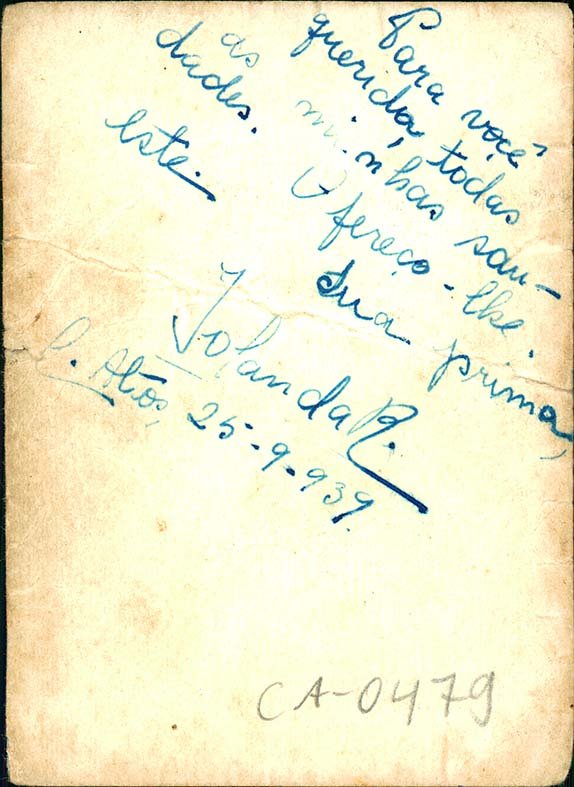 Para você
querida, todas
as minhas sau-
dades. Ofereço-lhe
este.
Sua prima,
Yolanda R.
25-9-939.
CA-0479